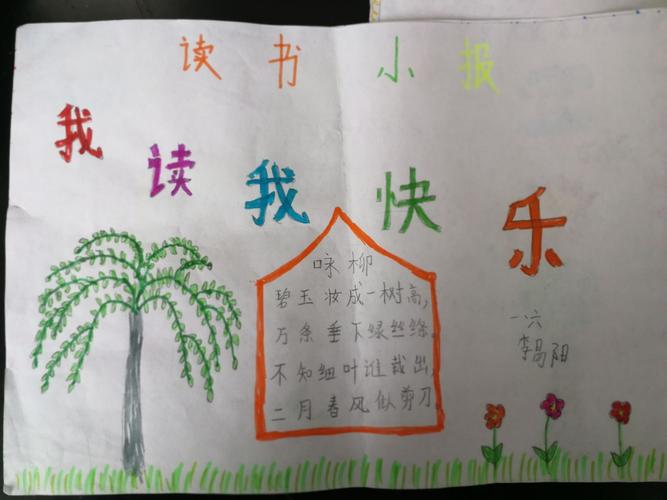 读书小报
我读我快乐
咏柳
碧玉妆成一树高,
万条垂下绿丝绦。
不知细叶谁裁出
二月春风似剪刀
一六
李昜阳